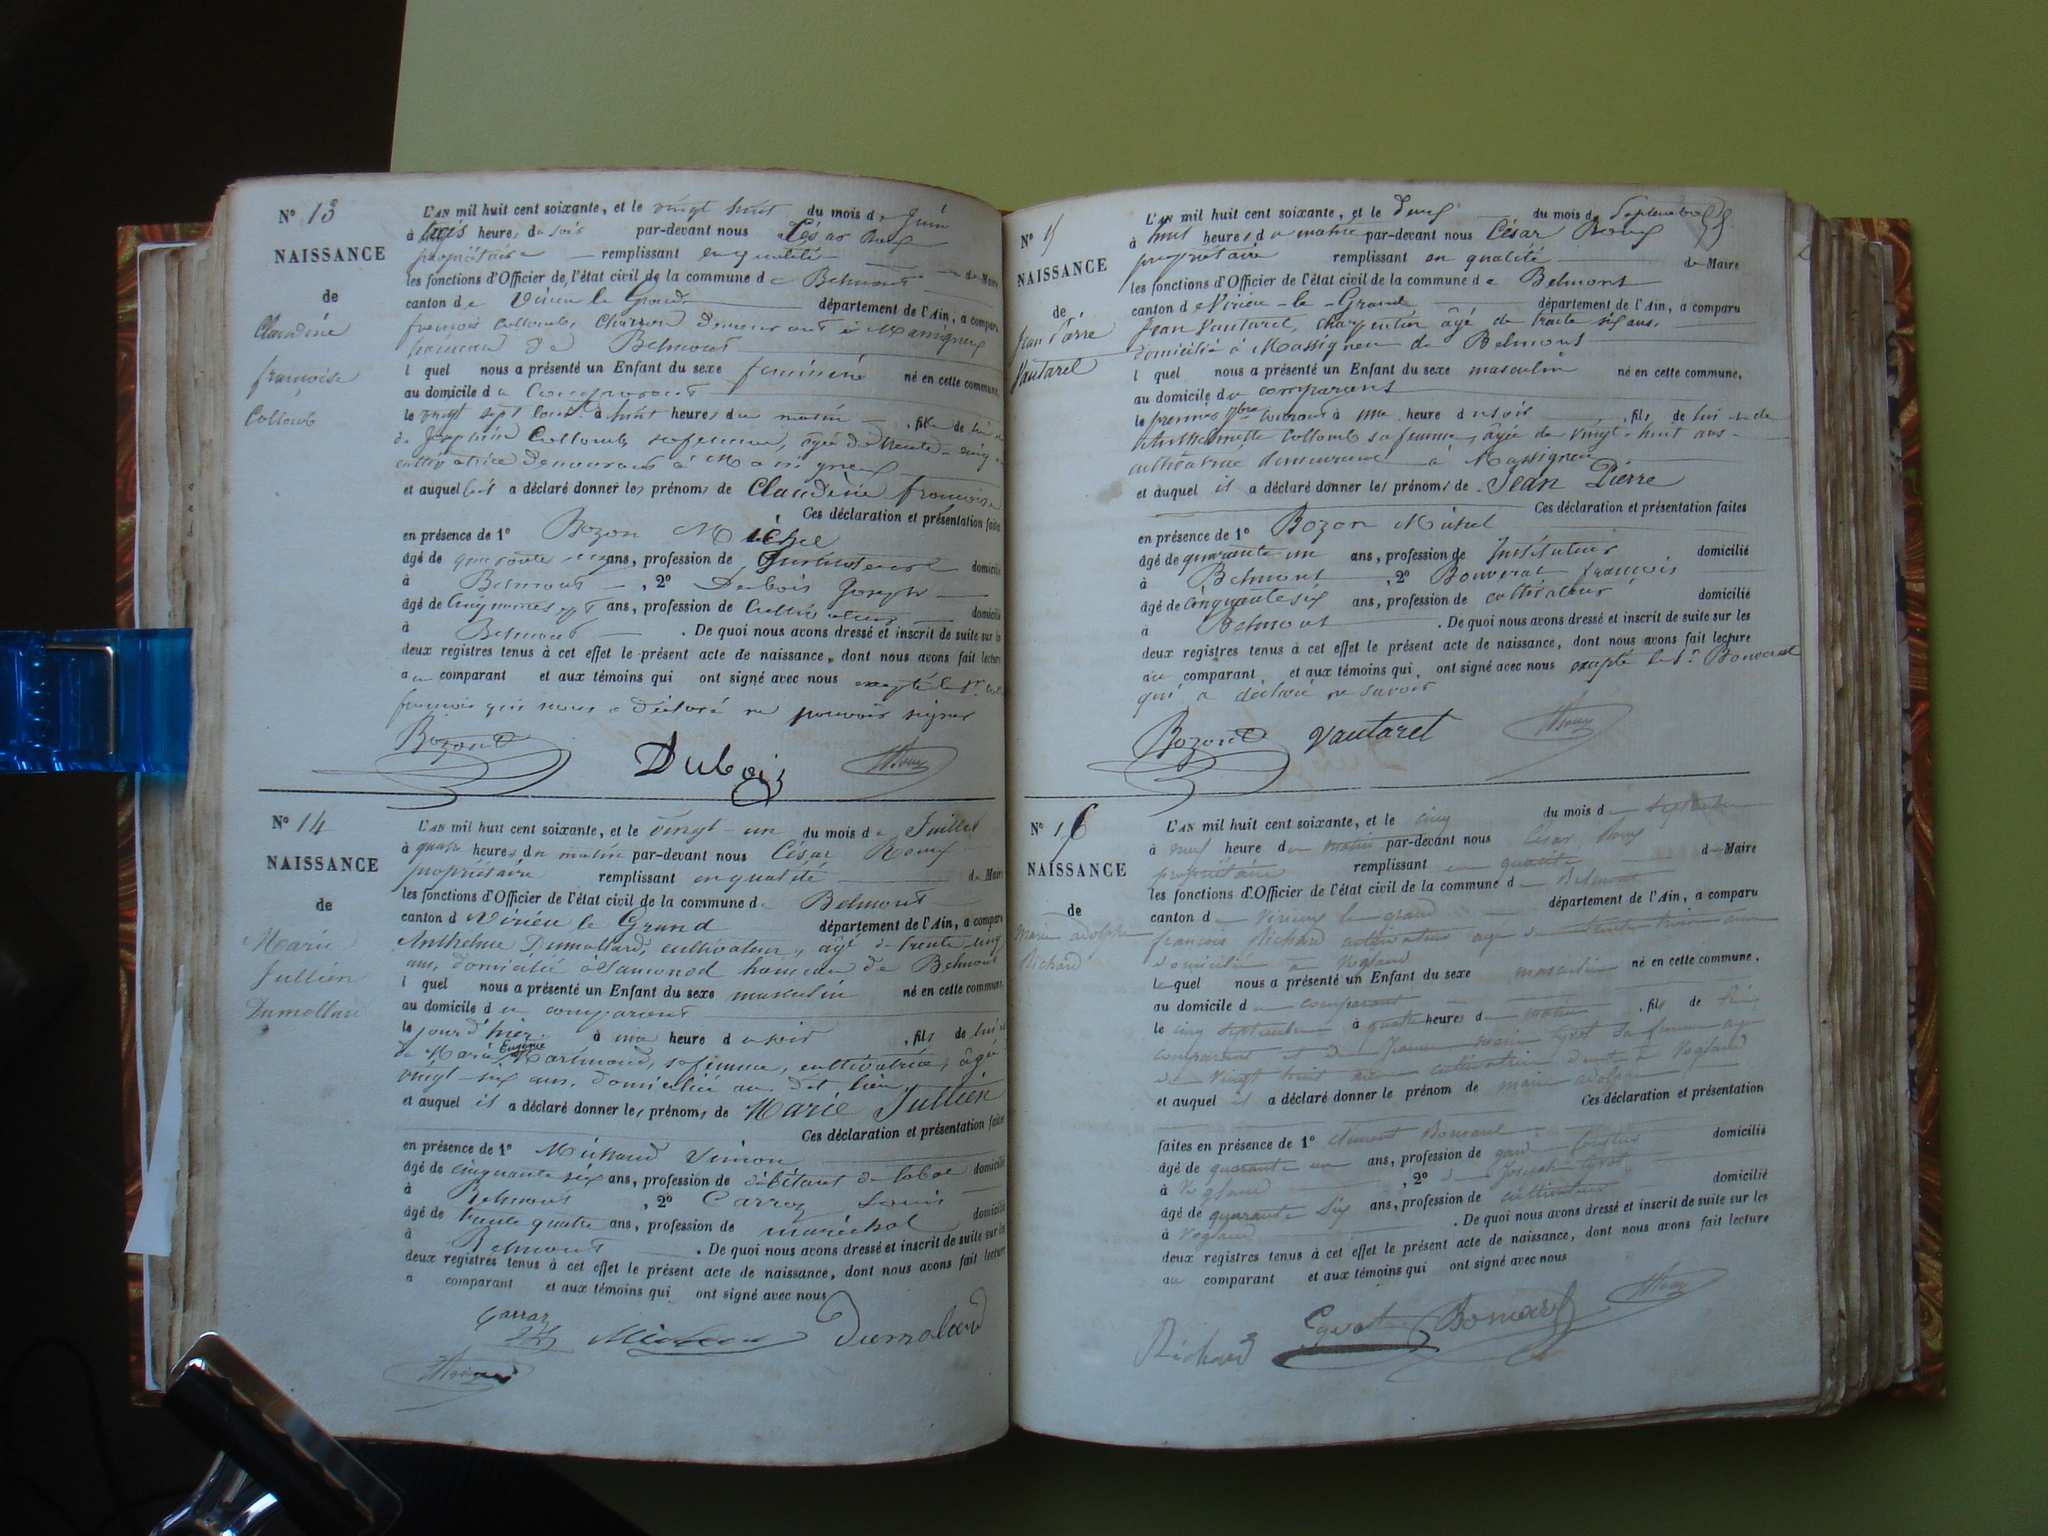 N° 13
NAISSANCE
de
Claudine
françoise
Collomb
L'AN mil huit cent soixante, et le vingt huit du mois de Juin
à trois heures du soir par-devant nous César Roux
propriétaire remplissant en qualité de Maire
les fonctions d'Officier de l'état civil de la commune de Belmont
canton de Virieu le Grand département de l'Ain, a comparu
françois Collomb, demeurant à Massignieu
hameau de Belmont
l quel nous a présenté un Enfant du sexe féminin né en cette commune,
au domicile du Comparant
le vingt sept à huit heures du matin , fille de lui et
de Collomb sa femme, âgée de trente-cinq
cultivatrice demeurant à Massignieu
et auquel a déclaré donner les prénoms de Claudine françoise
Ces déclaration et présentation faites
en présence de 1° Bozon Michel
âgé de quarante un ans, profession de Instituteur domicilié
à Belmont , 2° Dubois Joseph
âgé de cinquante sept ans, profession de Cultivateur domicilié
à Belmont . De quoi nous avons dressé et inscrit de suite sur les
deux registres tenus à cet effet le présent acte de naissance, dont nous avons fait lecture
au comparant et aux témoins qui ont signé avec nous excepté le Sr
françois qui nous a déclaré ne pouvoir signer
Bozon Dubois Roux
N° 14
NAISSANCE
de
Marie
Jullien
Dumollard
L'AN mil huit cent soixante, et le vingt-un du mois de Juillet
à quatre heures du matin par-devant nous César Roux
propriétaire remplissant en qualité de Maire
les fonctions d'Officier de l'état civil de la commune de Belmont
canton d Virieu le Grand département de l'Ain, a comparu
Anthelme Dumollard, cultivateur, agé de trente-cinq
ans, domicilié à hameau de Belmont
l quel nous a présenté un Enfant du sexe masculin né en cette commune,
au domicile du comparant
le jour d'hier à une heure du soir , fils de lui et
de Marie Eugénie Martinand, sa femme, cultivatrice, âgée
vingt-six ans, domiciliée au dit lieu
et auquel il a déclaré donner les prénoms de Marie Jullien
Ces déclaration et présentation faites
en présence de 1° Michaud Simon
âgé de cinquante six ans, profession de débitant de tabac domicilié
à Belmont , 2° Carroz Louis
âgé de trente quatre ans, profession de maréchal domicilié
à Belmont . De quoi nous avons dressé et inscrit de suite sur les
deux registres tenus à cet effet le présent acte de naissance, dont nous avons fait lecture
a comparant et aux témoins qui ont signé avec nous
Michaud Dumolard
Roux
N° 15
NAISSANCE
de
Jean Pierre
Vautaret
L'AN mil huit cent soixante, et le deux du mois de Septembre
à huit heures du matin par-devant nous César Roux
propriétaire remplissant en qualité de Maire
les fonctions d'Officier de l'état civil de la commune de Belmont
canton d Virieu-le-Grand département de l'Ain, a comparu
Jean Vautaret, charpentier âgé de trente six ans,
domicilié à Massignieu de Belmont
l quel nous a présenté un Enfant du sexe masculin né en cette commune,
au domicile du comparant
le premier 7bre courant à une heure du soir , fils de lui et de
Anthelmette Collomb sa femme, âgée de vingt-huit ans
cultivatrice demeurant à Massignieu
et auquel il a déclaré donner les prénoms de Jean Pierre
Ces déclaration et présentation faites
en présence de 1° Bozon Michel
âgé de quarante un ans, profession de Instituteur domicilié
à Belmont , 2° Bonverat françois
âgé de cinquante six ans, profession de cultivateur domicilié
à Belmont . De quoi nous avons dressé et inscrit de suite sur les
deux registres tenus à cet effet le présent acte de naissance, dont nous avons fait lecture
au comparant et aux témoins qui ont signé avec nous excepté le Sr Bonverat
qui a déclaré ne savoir
Bozon Vautaret Roux
N° 16
NAISSANCE
de
Marie adolphe
Richard
L'AN mil huit cent soixante, et le cinq du mois de septembre
à neuf heure du matin par-devant nous César Roux
propriétaire remplissant en qualité de Maire
les fonctions d'Officier de l'état civil de la commune de Belmont
canton de Virieux le grand département de l'Ain, a comparu
françois Richard cultivateur age de trente trois ans
domicilié à Vogland
le quel nous a présenté un Enfant du sexe masculin né en cette commune,
au domicile du comparant
le cinq septembre à quatre heures du matin , fils de lui
comparant et de Jeanne marie sa femme age
de vingt huit ans cultivatrice à Vogland
et auquel il a déclaré donner le prénom de marie adolphe
Ces déclaration et présentation
faites en présence de 1° Clément domicilié
âgé de quarante un ans, profession de
à Vogland , 2° Joseph
âgé de quarante six ans, profession de cultivateur domicilié
à Vogland . De quoi nous avons dressé et inscrit de suite sur les
deux registres tenus à cet effet le présent acte de naissance, dont nous avons fait lecture
au comparant et aux témoins qui ont signé avec nous
Richard Roux